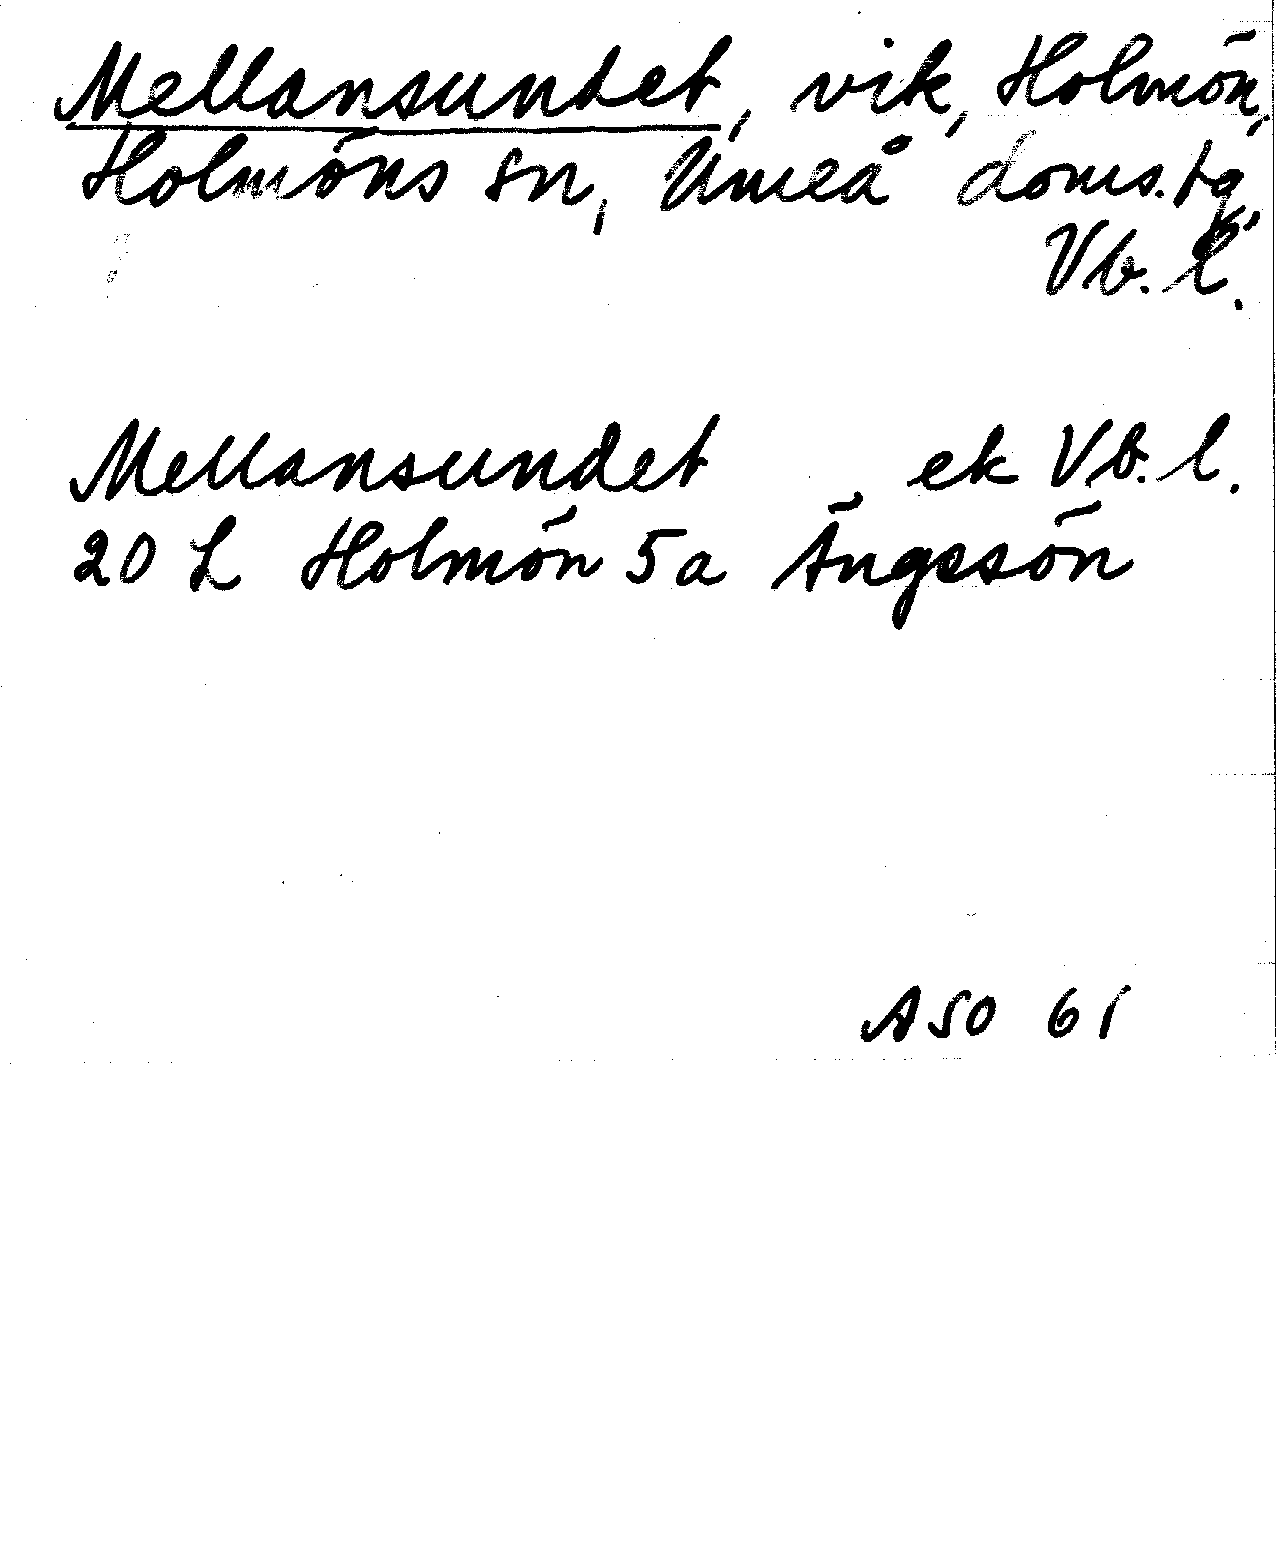 Mellansundet, vik, Holmön,
Holmöns sn, Umeå doms.tg,
Vb. l.
Mellansundet ek Vb. l.
20 L Holmön 5a Ängesön
ASO 61